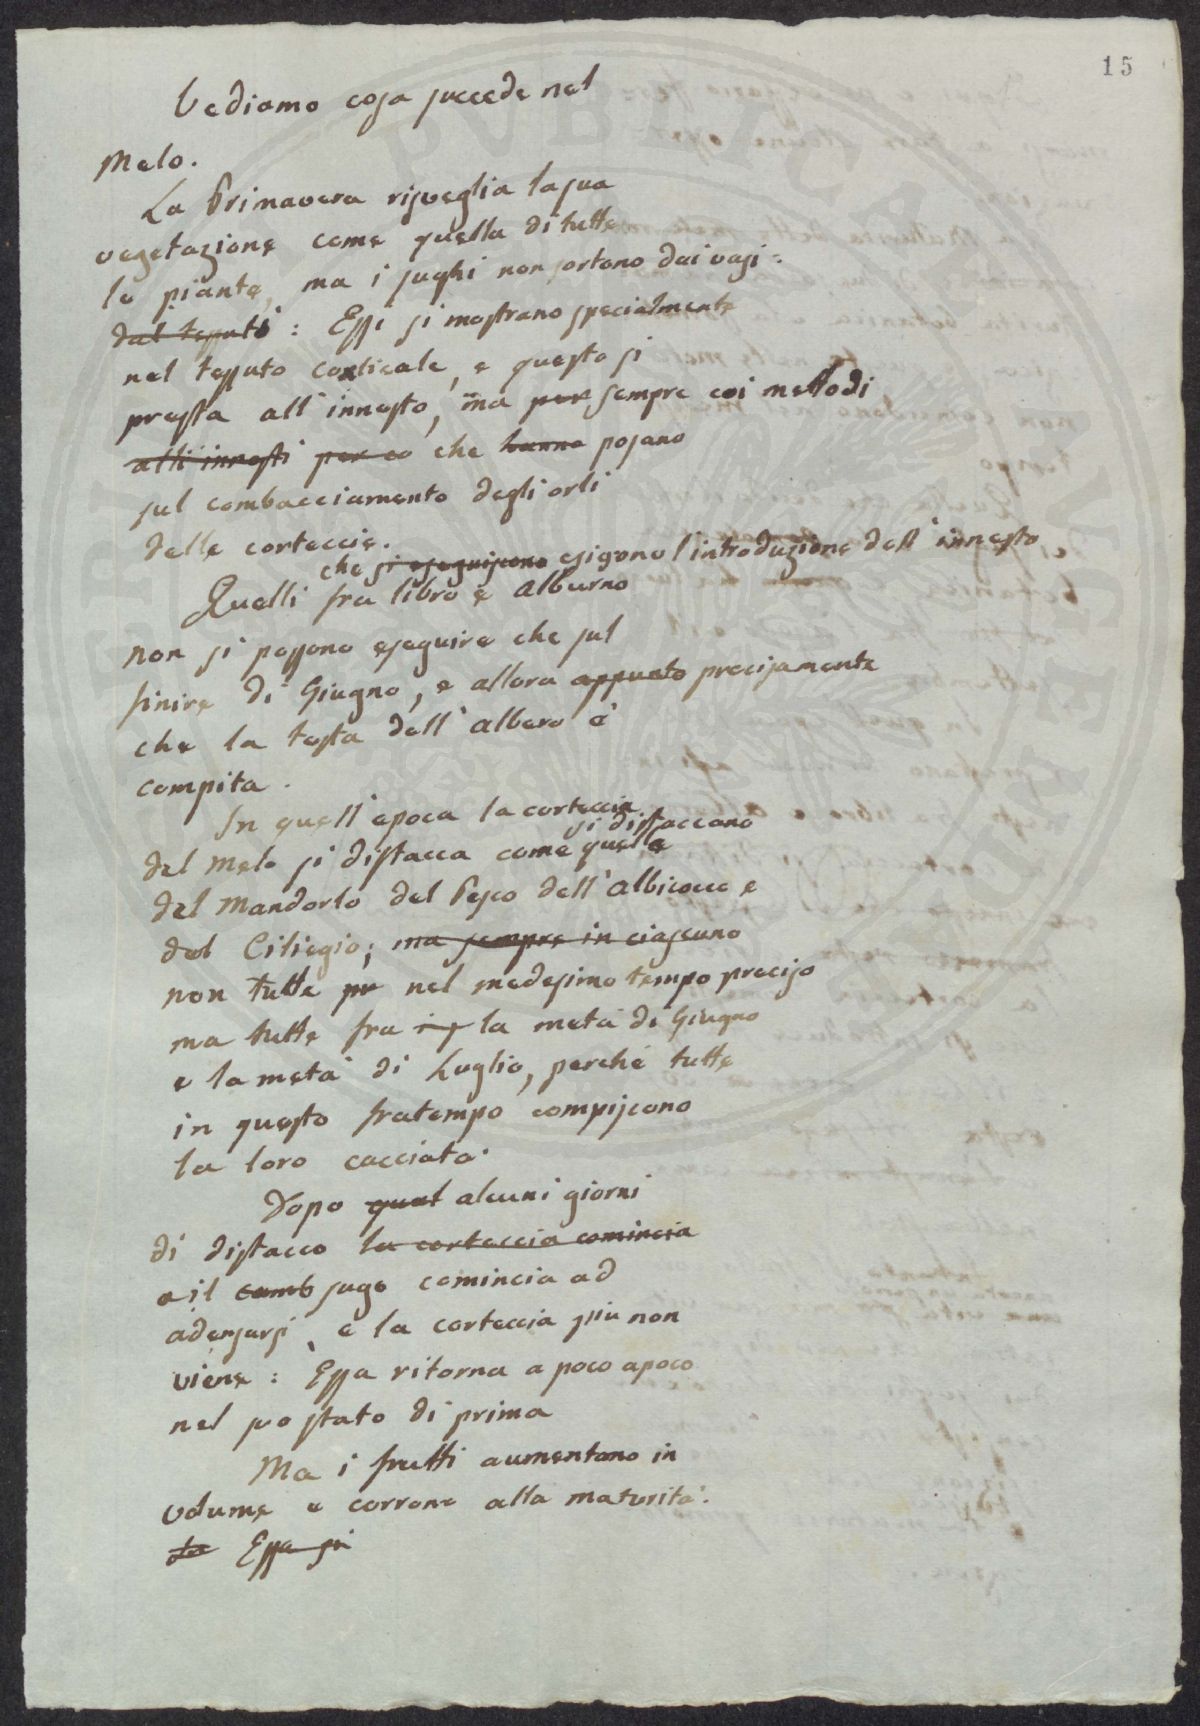 15
Vediamo cosa succede nel
Melo.
La Primavera risveglia la sua
vegetazione come quella di tutte
le piante, ma i sughi non sortono dai vasi:
dal tessuti : Essi si mostrano specialmente
nel tessuto corticale, e questo si
pressta all'innesto, ma per sempre coi mettodi
alli innesti per co che hanno posano
sul combacciamento degli orli
delle corteccie.
che si eseguiscono esigono l'introduzione dell'innesto
Quelli fra libro e alburno
non si possono eseguire che sul
finire di Giugno, e allora appunto precisamente
che la testa dell'albero è
compita.
In quell'epoca la corteccia
si distaccano
del Melo si distacca come quelle
del Mandorlo del Pesco dell'Albicocco e
del Ciliegio; ma sempre in ciascuno
non tutte pr nel medesimo tempo preciso
ma tutte fra la metà di Giugno
e la metà di Luglio, perché tutte
in questo fratempo compiscono
la loro cacciata.
Dopo qual alcuni giorni
di distacco la corteccia comincia
a il camb sugo comincia ad
adensarsi, e la corteccia più non
viene : Essa ritorna a poco a poco
nel suo stato di prima
Ma i frutti aumentano in
volume e corrono alla maturità.
La Essa si